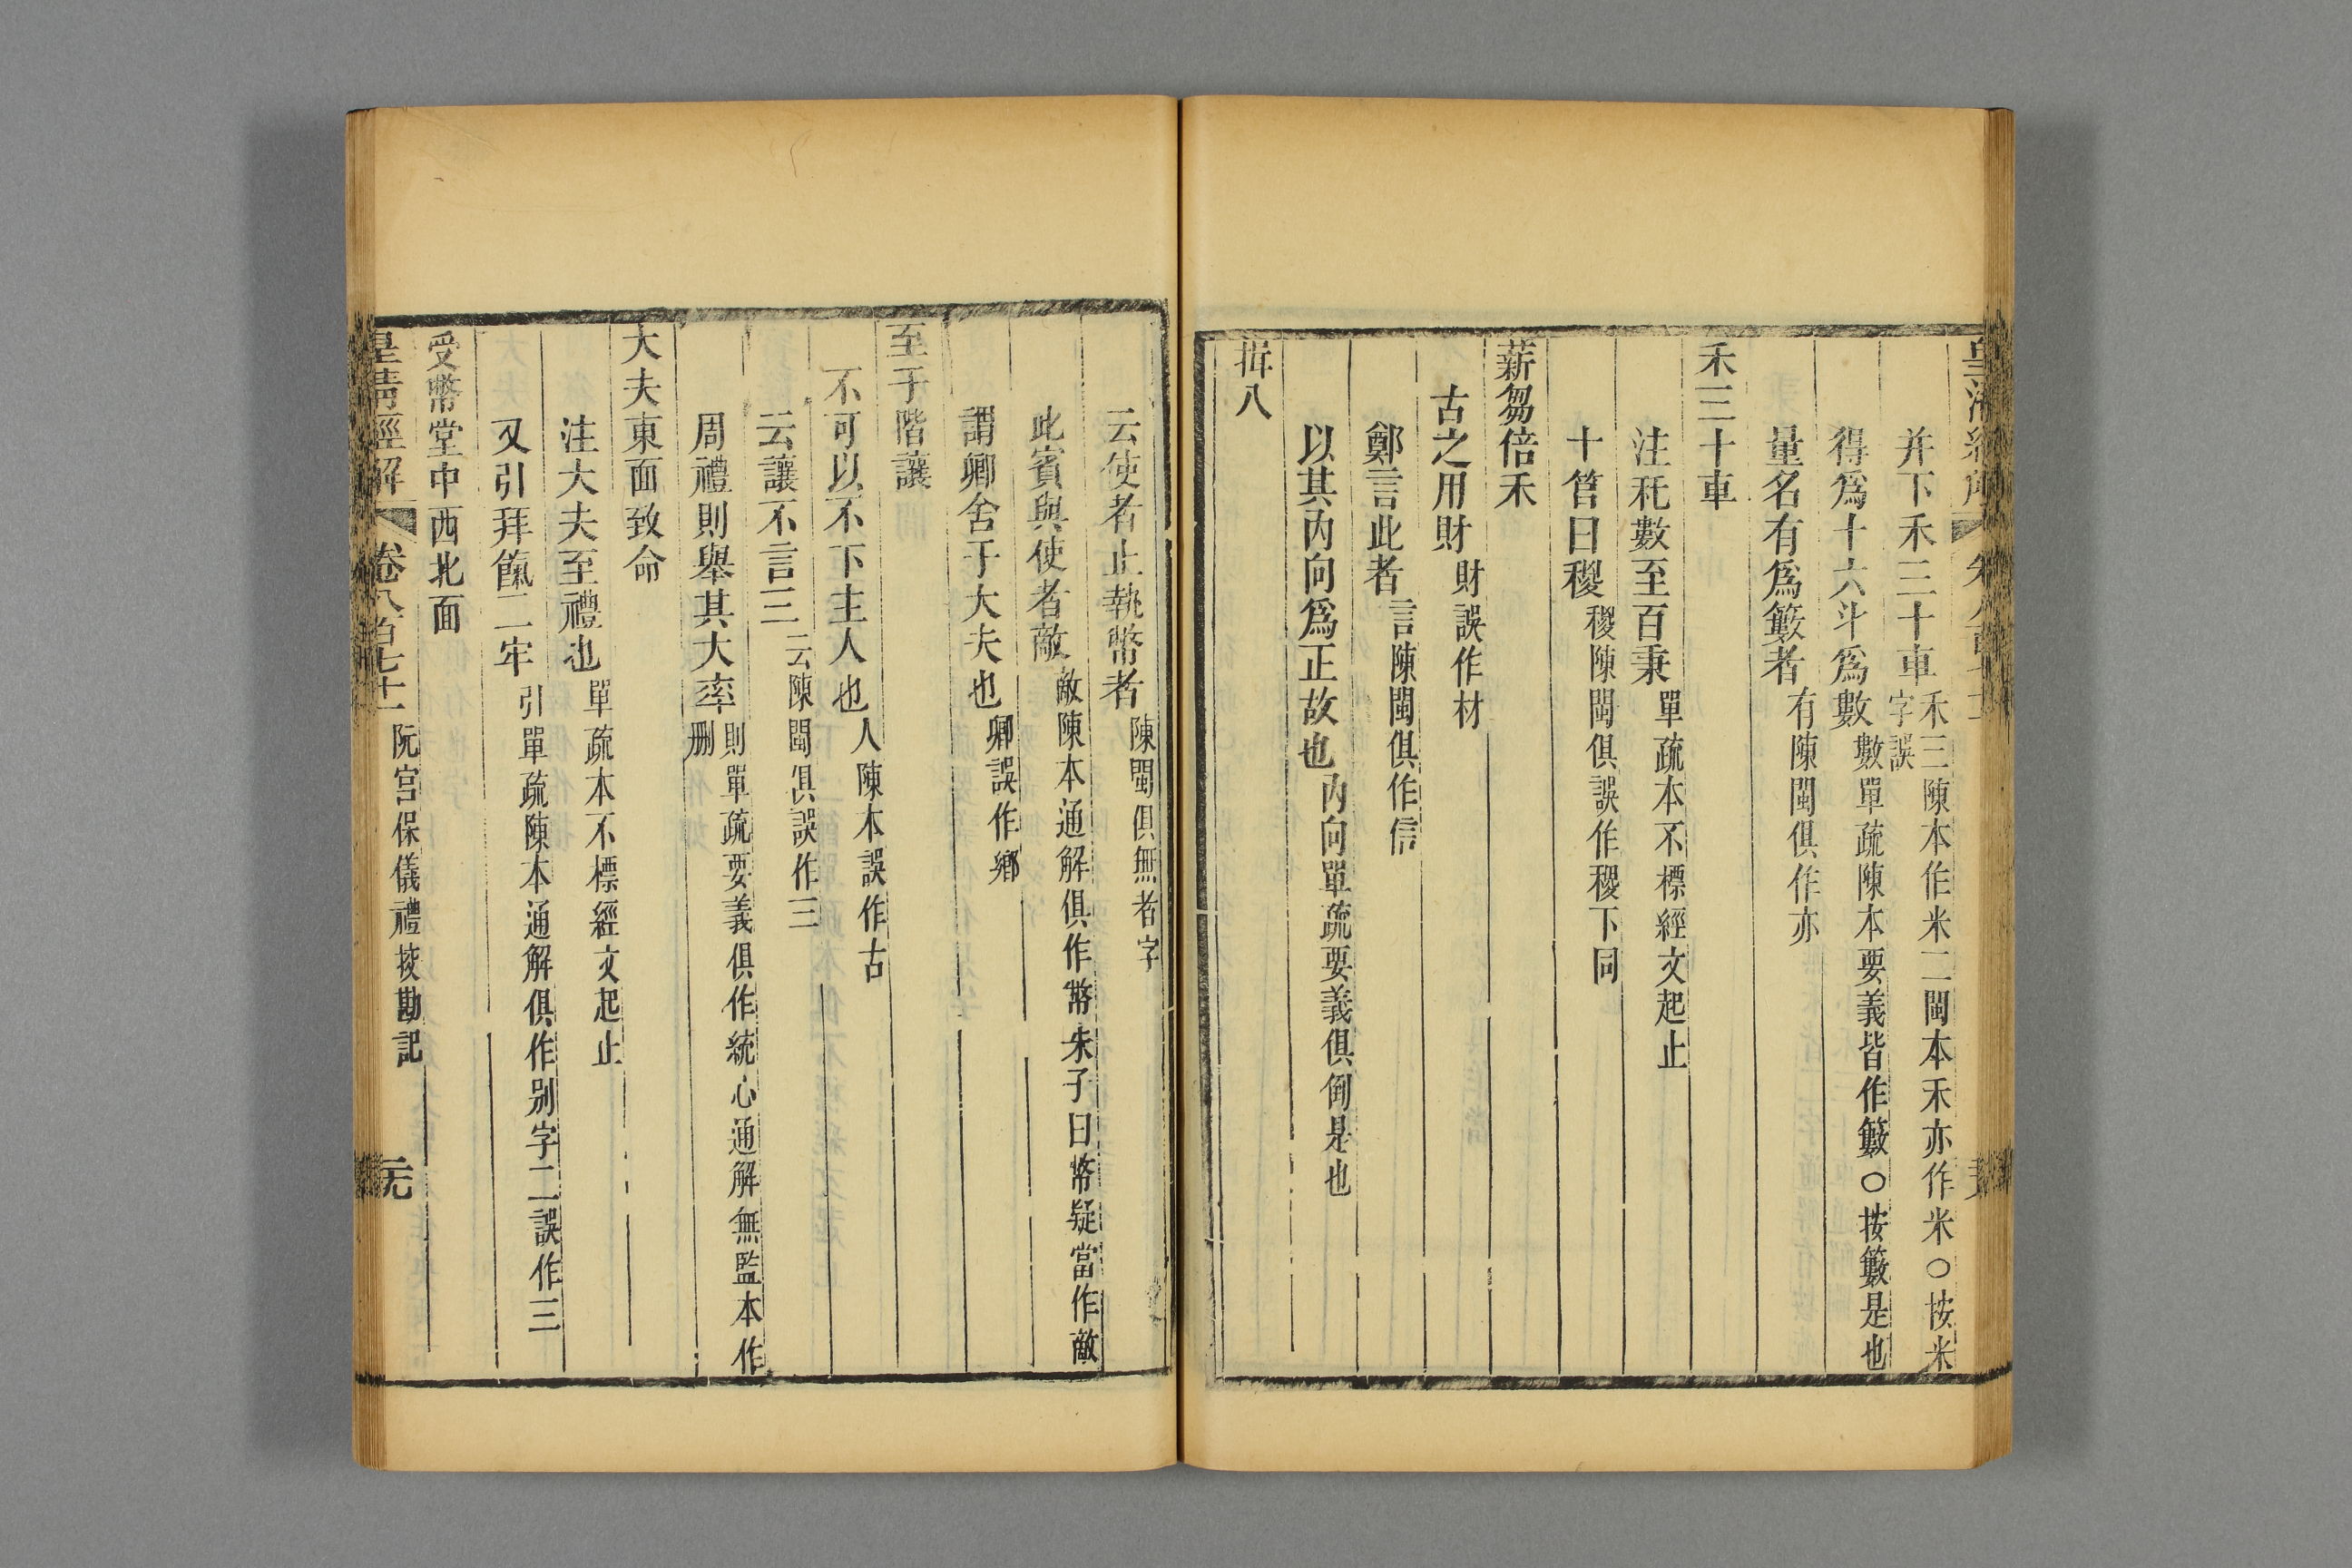 并下禾三十車禾三陳本作米二閩本禾亦作米○按米字誤
得爲十六斗爲數數單疏陳本要義皆作籔○按籔是也
量名有爲籔者有陳閩俱作亦
禾三十車
注秅數至百秉單疏本不標經文起止
十筥曰稯稯陳閩俱誤作稷下同
薪芻倍禾
古之用財財誤作材
鄭言此者言陳閩俱作信
以其內向爲正故也內向單疏要義俱倒是也
揖八
云使者止執幣者陳閩俱無者字
此賓與使者敵敵陳本通解俱作幣朱子曰幣疑當作敵
謂卿舍于大夫也卿誤作鄉
至于階讓
不可以不下主人也人陳本誤作古
云讓不言三云陳閩俱誤作三
周禮則舉其大率則單疏要義俱作統心通解無監本作刪
大夫東面致命
注大夫至禮也單疏本不標經文起止
又引拜餼二牢引單疏陳本通解俱作別字二誤作三
受幣堂中西北面
皇清經解 卷八百七十一 阮宮保儀禮挍勘記 元